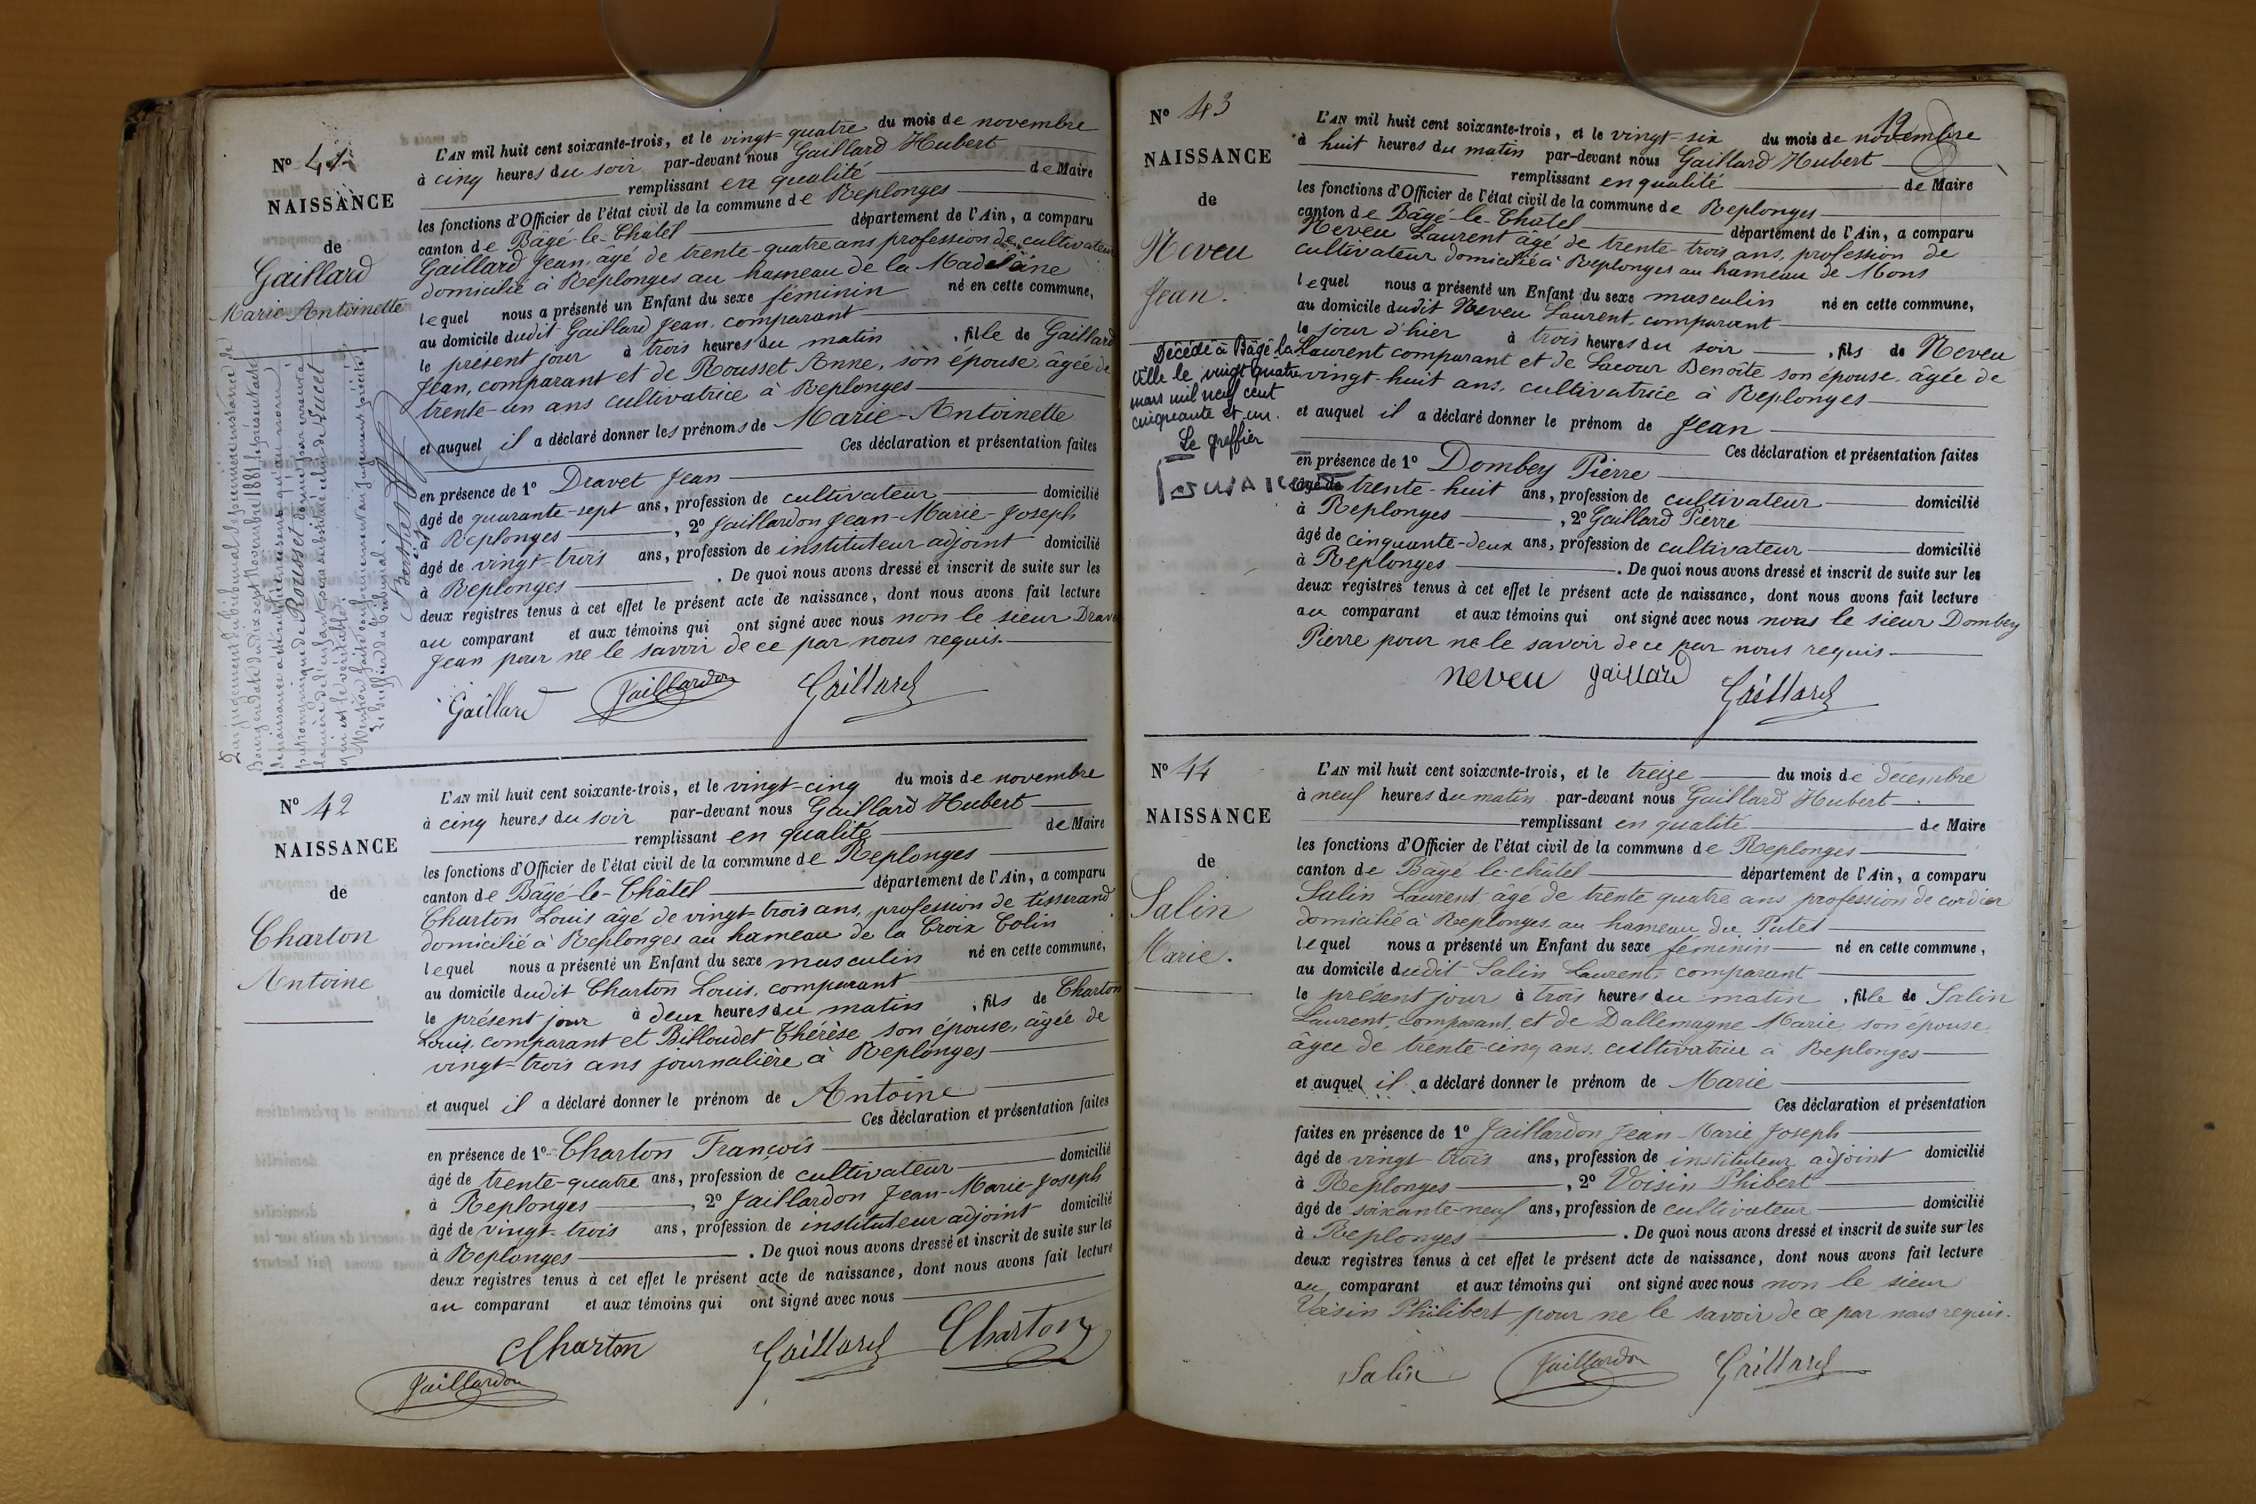 N° 41
NAISSANCE
de
Gaillard
Marie Antoinette
Par jugement du tribunal de première instance de
Bourg en date du dix sept Novembre 1881, le présent acte
de naissance a été rectifié en ce sens qu'au nom
patronymique de Rousset donné par erreur à
la mère de l'enfant sera substitué celui de Lucet
qui est le véritable.
Mention faite conformément au jugement précité.
Le Greffier du tribunal.
L'AN mil huit cent soixante-trois, et le vingt-quatre du mois de novembre
à cinq heures du soir par-devant nous Gaillard Hubert
remplissant en qualité de Maire
les fonctions d'Officier de l'état civil de la commune de Replonges
canton de Bâgé-le-Châtel département de l'Ain, a comparu
Gaillard Jean, âgé de trente-quatre ans profession de cultivateur
domicilié à Replonges au hameau de la Madelaine
lequel nous a présenté un Enfant du sexe féminin né en cette commune,
au domicile dudit Gaillard Jean, comparant
le présent jour à trois heures du matin, fille de Gaillard
Jean, comparant et de Rousset Anne, son épouse, âgée de
trente-un ans cultivatrice à Replonges
et auquel il a déclaré donner les prénoms de Marie-Antoinette
Ces déclaration et présentation faites
en présence de 1° Dravet Jean
âgé de quarante-sept ans, profession de cultivateur domicilié
à Replonges, 2° Jaillardon Jean-Marie-Joseph
âgé de vingt-trois ans, profession de instituteur adjoint domicilié
à Replonges. De quoi nous avons dressé et inscrit de suite sur les
deux registres tenus à cet effet le présent acte de naissance, dont nous avons fait lecture
au comparant et aux témoins qui ont signé avec nous non le sieur Dravet
Jean pour ne le savoir de ce par nous requis.
Gaillard Jaillardon Gaillard
N° 42
NAISSANCE
de
Charton
Antoine
L'AN mil huit cent soixante-trois, et le vingt-cinq du mois de novembre
à cinq heures du soir par-devant nous Gaillard Hubert
remplissant en qualité de Maire
les fonctions d'Officier de l'état civil de la commune de Replonges
canton de Bâgé-le-Châtel département de l'Ain, a comparu
Charton Louis âgé de vingt-trois ans, profession de tisserand
domicilié à Replonges au hameau de la Croix Colin
lequel nous a présenté un Enfant du sexe masculin né en cette commune,
au domicile dudit Charton Louis, comparant
le présent jour à deux heures du matin, fils de Charton
Louis, comparant et Billoudet Thérèse, son épouse, âgée de
vingt-trois ans journalière à Replonges
et auquel il a déclaré donner le prénom de Antoine
Ces déclaration et présentation faites
en présence de 1° Charton François
âgé de trente-quatre ans, profession de cultivateur domicilié
à Replonges, 2° Jaillardon Jean-Marie-Joseph
âgé de vingt-trois ans, profession de instituteur adjoint domicilié
à Replonges. De quoi nous avons dressé et inscrit de suite sur les
deux registres tenus à cet effet le présent acte de naissance, dont nous avons fait lecture
au comparant et aux témoins qui ont signé avec nous
Charton Gaillard Charton
Jaillardon
12
N° 43
NAISSANCE
de
Neveu
Jean.
Décédé à Bâgé la
Ville le vingt quatre
mars mil neuf cent
cinquante et un.
Le greffier
L'AN mil huit cent soixante-trois, et le vingt-six du mois de novembre
à huit heures du matin par-devant nous Gaillard Hubert
remplissant en qualité de Maire
les fonctions d'Officier de l'état civil de la commune de Replonges
canton de Bâgé-le-Châtel département de l'Ain, a comparu
Neveu Laurent âgé de trente-trois ans, profession de
cultivateur domicilié à Replonges au hameau de Mons
lequel nous a présenté un Enfant du sexe masculin né en cette commune,
au domicile dudit Neveu Laurent, comparant
le jour d'hier à trois heures du soir, fils de Neveu
Laurent comparant et de Lacour Benoîte son épouse, âgée de
vingt-huit ans, cultivatrice à Replonges
et auquel il a déclaré donner le prénom de Jean
Ces déclaration et présentation faites
en présence de 1° Dombey Pierre
âgé de trente-huit ans, profession de cultivateur domicilié
à Replonges, 2° Gaillard Pierre
âgé de cinquante-deux ans, profession de cultivateur domicilié
à Replonges. De quoi nous avons dressé et inscrit de suite sur les
deux registres tenus à cet effet le présent acte de naissance, dont nous avons fait lecture
au comparant et aux témoins qui ont signé avec nous non le sieur Dombey
Pierre pour ne le savoir de ce par nous requis.
neveu gaillard Gaillard
N° 44
NAISSANCE
de
Salin
Marie.
L'AN mil huit cent soixante-trois, et le treize du mois de décembre
à neuf heures du matin par-devant nous Gaillard Hubert
remplissant en qualité de Maire
les fonctions d'Officier de l'état civil de la commune de Replonges
canton de Bâgé le-châtel département de l'Ain, a comparu
Salin Laurent, âgé de trente quatre ans profession de cordier
domicilié à Replonges au hameau du Putet
lequel nous a présenté un Enfant du sexe féminin né en cette commune,
au domicile dudit Salin Laurent, comparant
le présent jour à trois heures du matin, fille de Salin
Laurent, comparant, et de Dallemagne Marie, son épouse,
âgée de trente-cinq ans, cultivatrice à Replonges
et auquel il a déclaré donner le prénom de Marie
Ces déclaration et présentation
faites en présence de 1° Jaillardon Jean-Marie Joseph
âgé de vingt-trois ans, profession de instituteur adjoint domicilié
à Replonges, 2° Voisin Phibert
âgé de soixante-neuf ans, profession de cultivateur domicilié
à Replonges. De quoi nous avons dressé et inscrit de suite sur les
deux registres tenus à cet effet le présent acte de naissance, dont nous avons fait lecture
au comparant et aux témoins qui ont signé avec nous non le sieur
Voisin Philibert pour ne le savoir de ce par nous requis.
Salin Jaillardon Gaillard